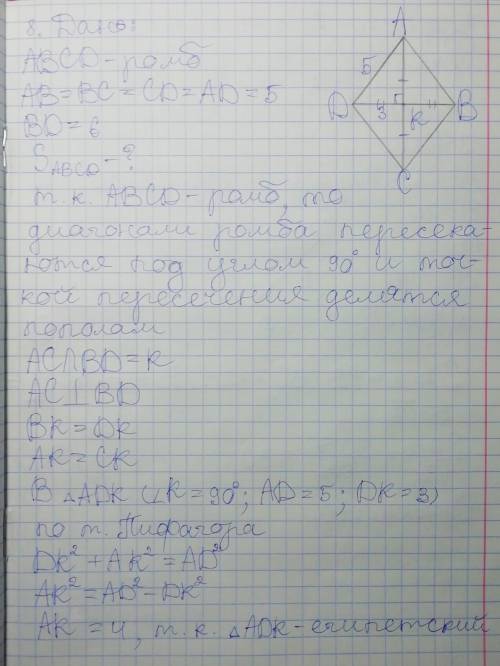 8. Дано:
ABCD - ромб
AB = BC = CD = AD = 5
BD = 6
S_ABCD - ?
т. к. ABCD - ромб, то
диагонали ромба пересека-
ются под углом 90° и точ-
кой пересечения делятся
пополам
AC∩BD = K
AC⊥BD
BK = DK
AK = CK
В △ADK (∠K = 90°; AD = 5; DK = 3)
по т. Пифагора
DK² + AK² = AD²
AK² = AD² - DK²
AK = 4, т. к. △ADK - египетский
A
5
D
3
K
B
C